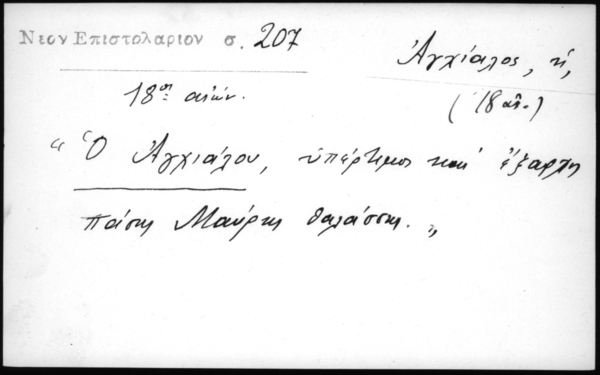 Νεον Επιστολαριον σ. 207
Ἀγχίαλος, ἡ,
18ος αἰών.
(18 αἰ.)
“ Ὁ Ἀγχιάλου, ὑπέρτιμος καὶ ἔξαρχος
πάσης Μαύρης θαλάσσης. „